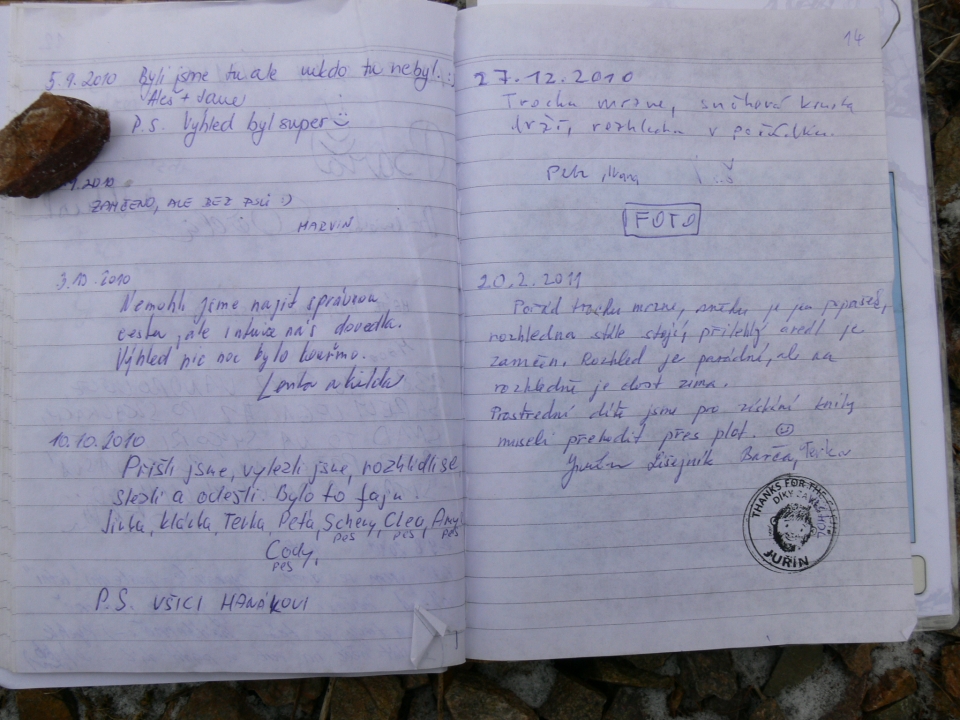 5.9.2010 Byli jsme tu ale nikdo tu nebyl. :)
Aleš + Jane
P.S. Výhled byl super
2010
ZAMČENO, ALE BEZ PSŮ :)
MARVIN
3.10.2010
Nemohli jsme najít správnou
cestu, ale intuice nás dovedla.
Výhled nic moc bylo kouřmo.
Lenka
10.10.2010
Přišli jsme, vylezli jsme, rozhlídli se
slezli a odešli. Bylo to fajn.
Jirka, Klárka, Terka, Peťa, Scherry, Cleo, Amy
pes pes pes
Cody,
pes
P.S. VŠICI HANÁKOVI
14
27.12.2010
Trochu mrzne, sněhová krusta
drží, rozhledna v pořádku.
Petr, Ivana
FOTO
20.2.2011
Pořád trochu mrzne, sněhu je jen poprašek,
rozhledna stále stojí, přilehlý areál je
zamčen. Rozhled je parádní, ale na
rozhledně je dost zima.
Prostřední dítě jsme pro získání knihy
museli přehodit přes plot.
Lišejník Barča, Terka
THANKS FOR THE
DÍKY ZA
JUŘÍN